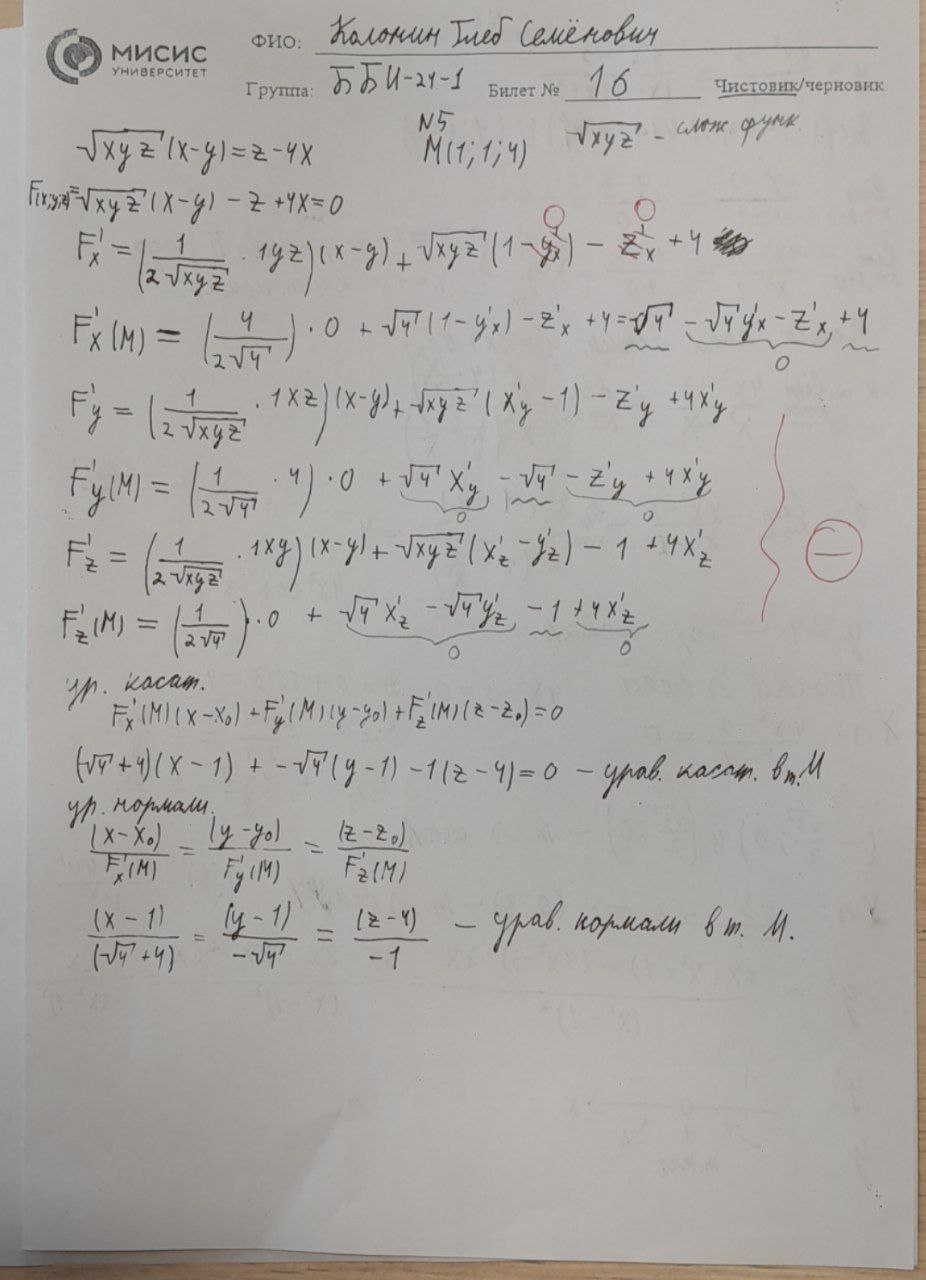 МИСИС
УНИВЕРСИТЕТ
ФИО: Колонин Глеб Семёнович
Группа: ББИ-24-1 Билет № 16 Чистовик/черновик
√xyz (x-y) = z - 4x N5 M(1; 1; 4) √xyz - слож. функ.
F(x;y;z) = √xyz (x-y) - z + 4x = 0
F'x = (1/(2√xyz) · 1yz)(x-y) + √xyz (1 - y'x) - z'x + 4
0 0
F'x(M) = (4/(2√4)) · 0 + √4 (1 - y'x) - z'x + 4 = √4 - √4 y'x - z'x + 4
0
F'y = (1/(2√xyz) · 1xz)(x-y) + √xyz (x'y - 1) - z'y + 4x'y
F'y(M) = (1/(2√4) · 4) · 0 + √4 x'y - √4 - z'y + 4x'y
0 0
F'z = (1/(2√xyz) · 1xy)(x-y) + √xyz (x'z - y'z) - 1 + 4x'z
F'z(M) = (1/(2√4)) · 0 + √4 x'z - √4 y'z - 1 + 4x'z
0 0
ур. касат.
F'x(M)(x-x₀) + F'y(M)(y-y₀) + F'z(M)(z-z₀) = 0
(√4 + 4)(x - 1) + -√4 (y - 1) - 1(z - 4) = 0 - урав. касат. в т. M
ур. нормали.
(x-x₀)/F'x(M) = (y-y₀)/F'y(M) = (z-z₀)/F'z(M)
(x-1)/(√4+4) = (y-1)/-√4 = (z-4)/-1 - урав. нормали в т. M.